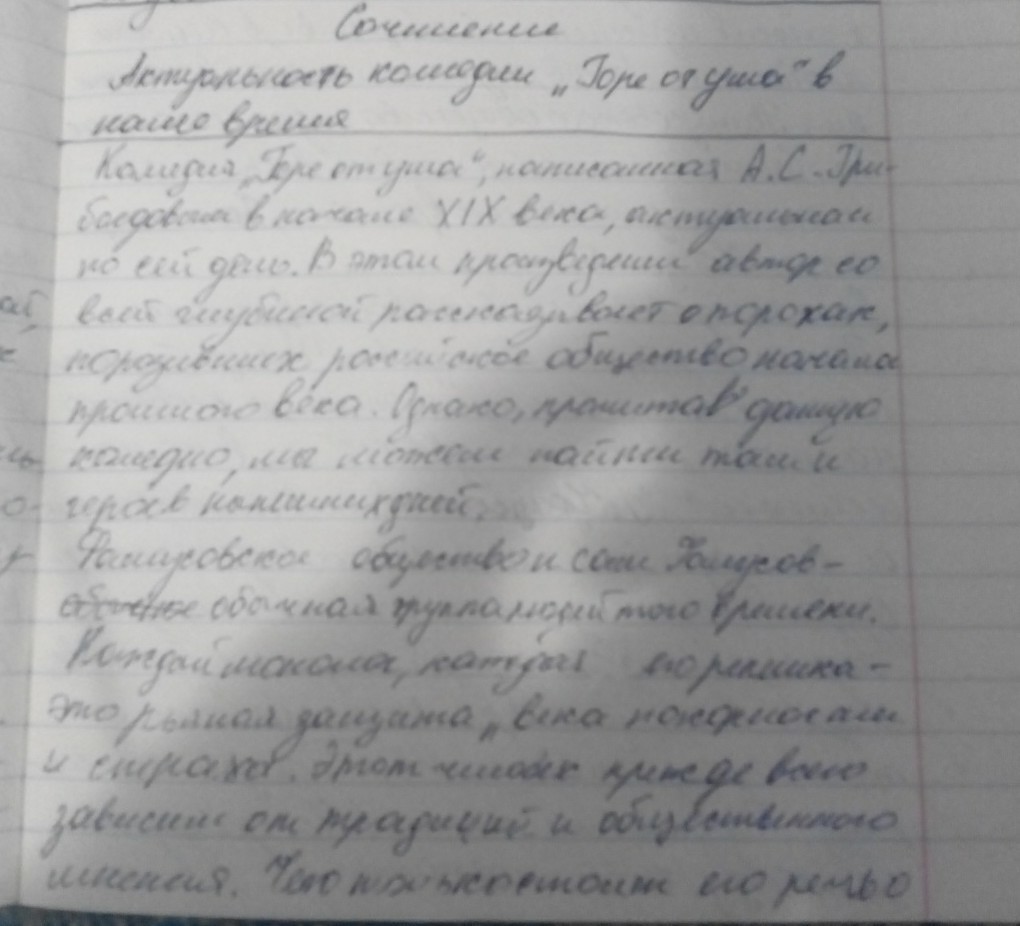 Сочинение
Актуальность комедии „Горе от ума" в
наше время
Комедия „Горе от ума", написанная А.С. Гри-
боедовым в начале XIX века, актуальна и
по сей день. В этом произведении автор со
всей глубиной рассказывает о пороках,
поразивших российское общество начала
прошлого века. Однако, прочитав данную
комедию, мы можем найти там и
героев нынешних дней.
Фамусовское общество и сам Фамусов -
обычная группа людей того времени.
Каждый монолог, каждая его реплика -
это рьяная защита „века покорности
и страха". Этот человек прежде всего
зависим от традиций и общественного
мнения. Чего только стоит его речь о